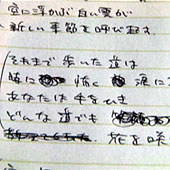 空に浮かぶ 白い雲が
新しい季節を呼び起す
それまで歩いた道は
時に 怖く 涙に
あなたは 手をひき
どんな道でも
花を咲